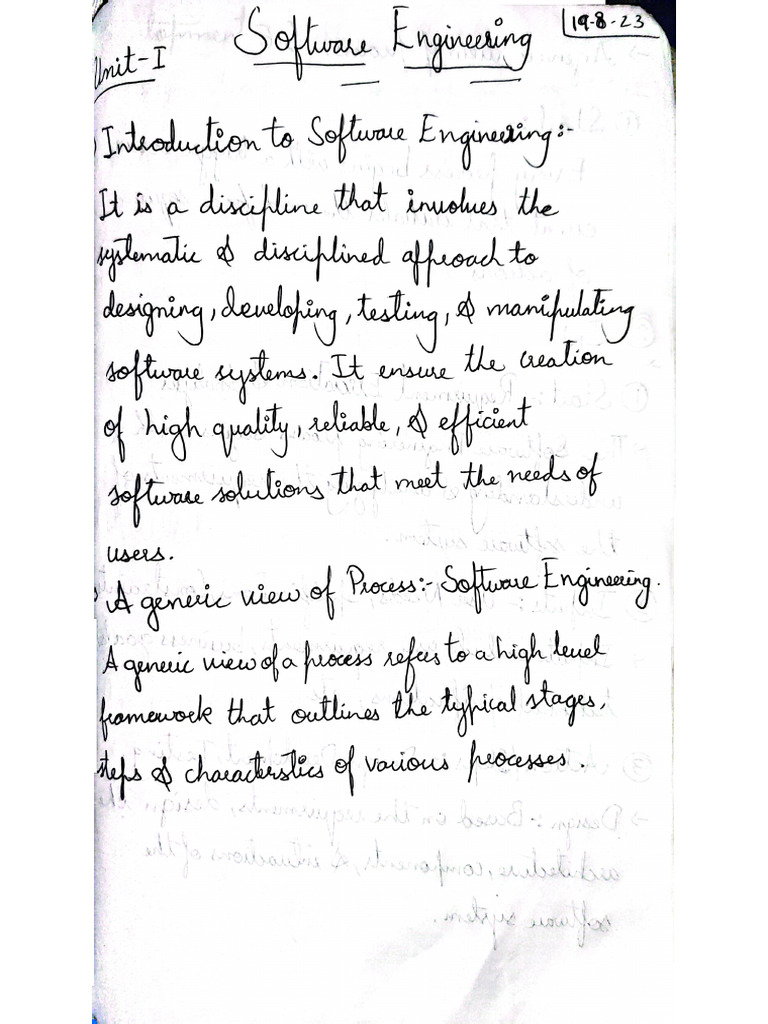 19-8-23
Software Engineering
Unit-I
Introduction to Software Engineering:-
It is a discipline that involves the
systematic & disciplined approach to
designing, developing, testing, & manipulating
software systems. It ensure the creation
of high quality, reliable, & efficient
software solutions that meet the needs of
users.
A generic view of Process:- Software Engineering.
A generic view of a process refers to a high level
framework that outlines the typical stages,
steps & characterstics of various processes.